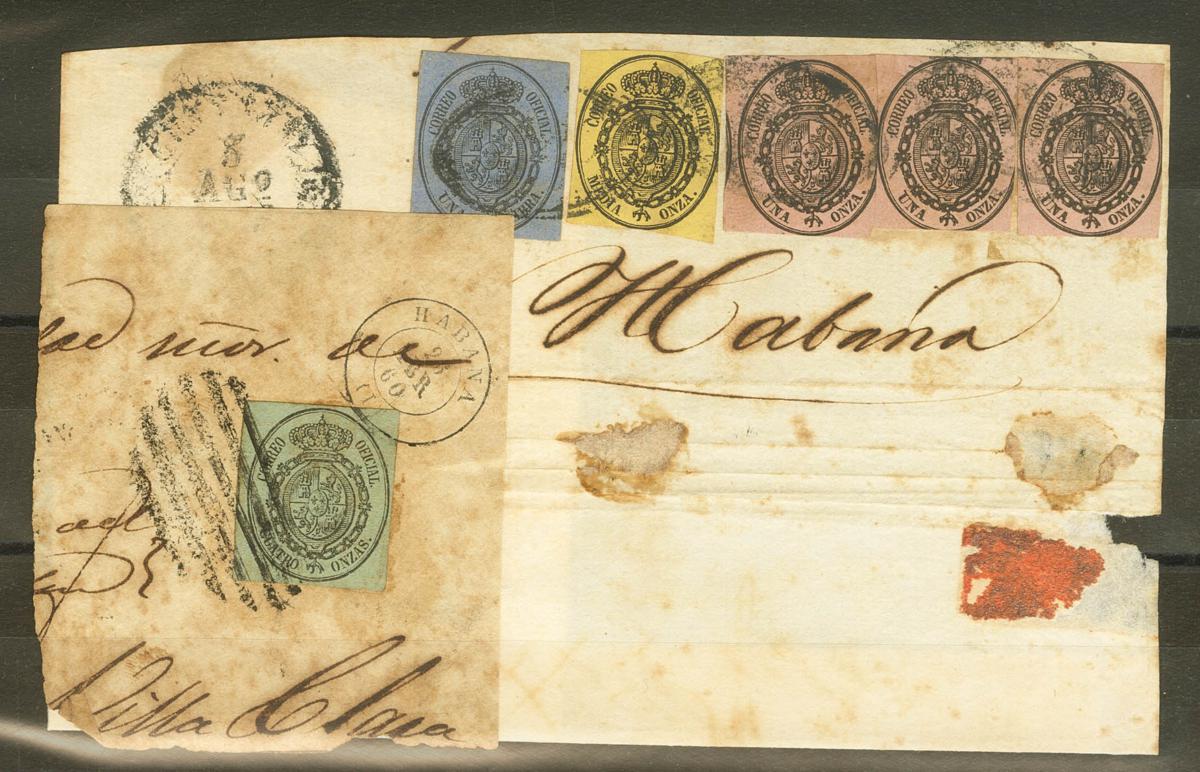 8
AGO
CORREO OFICIAL.
UNA LIBRA
CORREO OFICIAL.
MEDIA ONZA.
CORREO OFICIAL.
UNA ONZA.
CORREO OFICIAL.
UNA ONZA.
CORREO OFICIAL.
UNA ONZA.
Habana
HABANA
60
mor. de
CORREO OFICIAL.
CUATRO ONZAS.
Villa Clara